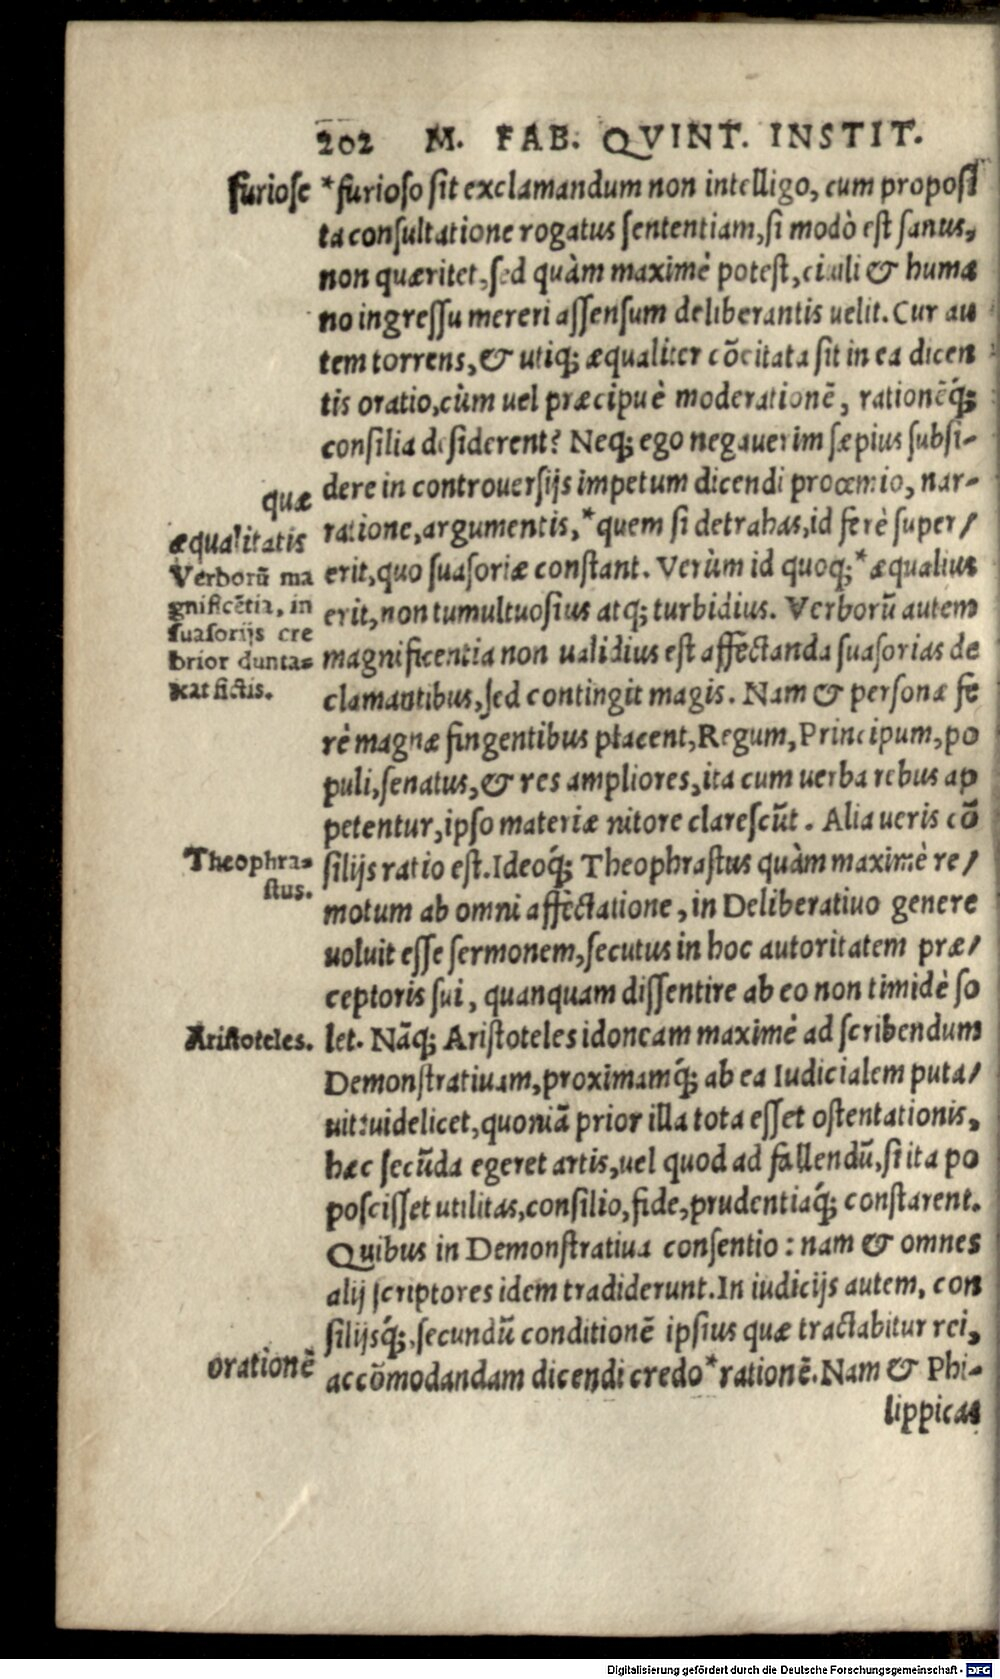 202 M. FAB. QVINT. INSTIT.
furiose
*furioso sit exclamandum non intelligo, cum proposi
ta consultatione rogatus sententiam, si modò est sanus,
non quæritet, sed quàm maximè potest, ciuili & huma
no ingressu mereri assensum deliberantis uelit. Cur au
tem torrens, & utiq; æqualiter cōcitata sit in ea dicen
tis oratio, cùm uel præcipuè moderationē, rationēq́;
consilia desiderent? Neq; ego negauerim sæpius subsi-
dere in controuersijs impetum dicendi proœmio, nar-
quæ
ratione, argumentis, *quem si detrahas, id ferè super/
æqualitatis
erit, quo suasoriæ constant. Verùm id quoq; *æqualius
Verborū ma
gnificētia, in
suasorijs cre
brior dunta-
xat fictis.
erit, non tumultuosius atq; turbidius. Verborū autem
magnificentia non ualidius est affectanda suasorias de
clamantibus, sed contingit magis. Nam & personæ fe
rè magnæ fingentibus placent, Regum, Principum, po
puli, senatus, & res ampliores, ita cum uerba rebus ap
petentur, ipso materiæ nitore clarescūt. Alia ueris cō
Theophra-
stus.
silijs ratio est. Ideoq́; Theophrastus quàm maximè re/
motum ab omni affectatione, in Deliberatiuo genere
uoluit esse sermonem, secutus in hoc autoritatem præ/
ceptoris sui, quanquam dissentire ab eo non timidè so
Aristoteles.
let. Nāq; Aristoteles idoneam maximè ad scribendum
Demonstratiuam, proximamq́; ab ea Iudicialem puta/
uit: uidelicet, quoniā prior illa tota esset ostentationis,
hæc secūda egeret artis, uel quod ad fallendū, si ita po
poscisset utilitas, consilio, fide, prudentiaq́; constarent.
Quibus in Demonstratiua consentio: nam & omnes
alij scriptores idem tradiderunt. In iudicijs autem, con
silijsq́;, secundū conditionē ipsius quæ tractabitur rei,
orationē
accōmodandam dicendi credo *rationē. Nam & Phi-
lippicas
Digitalisierung gefördert durch die Deutsche Forschungsgemeinschaft - DFG